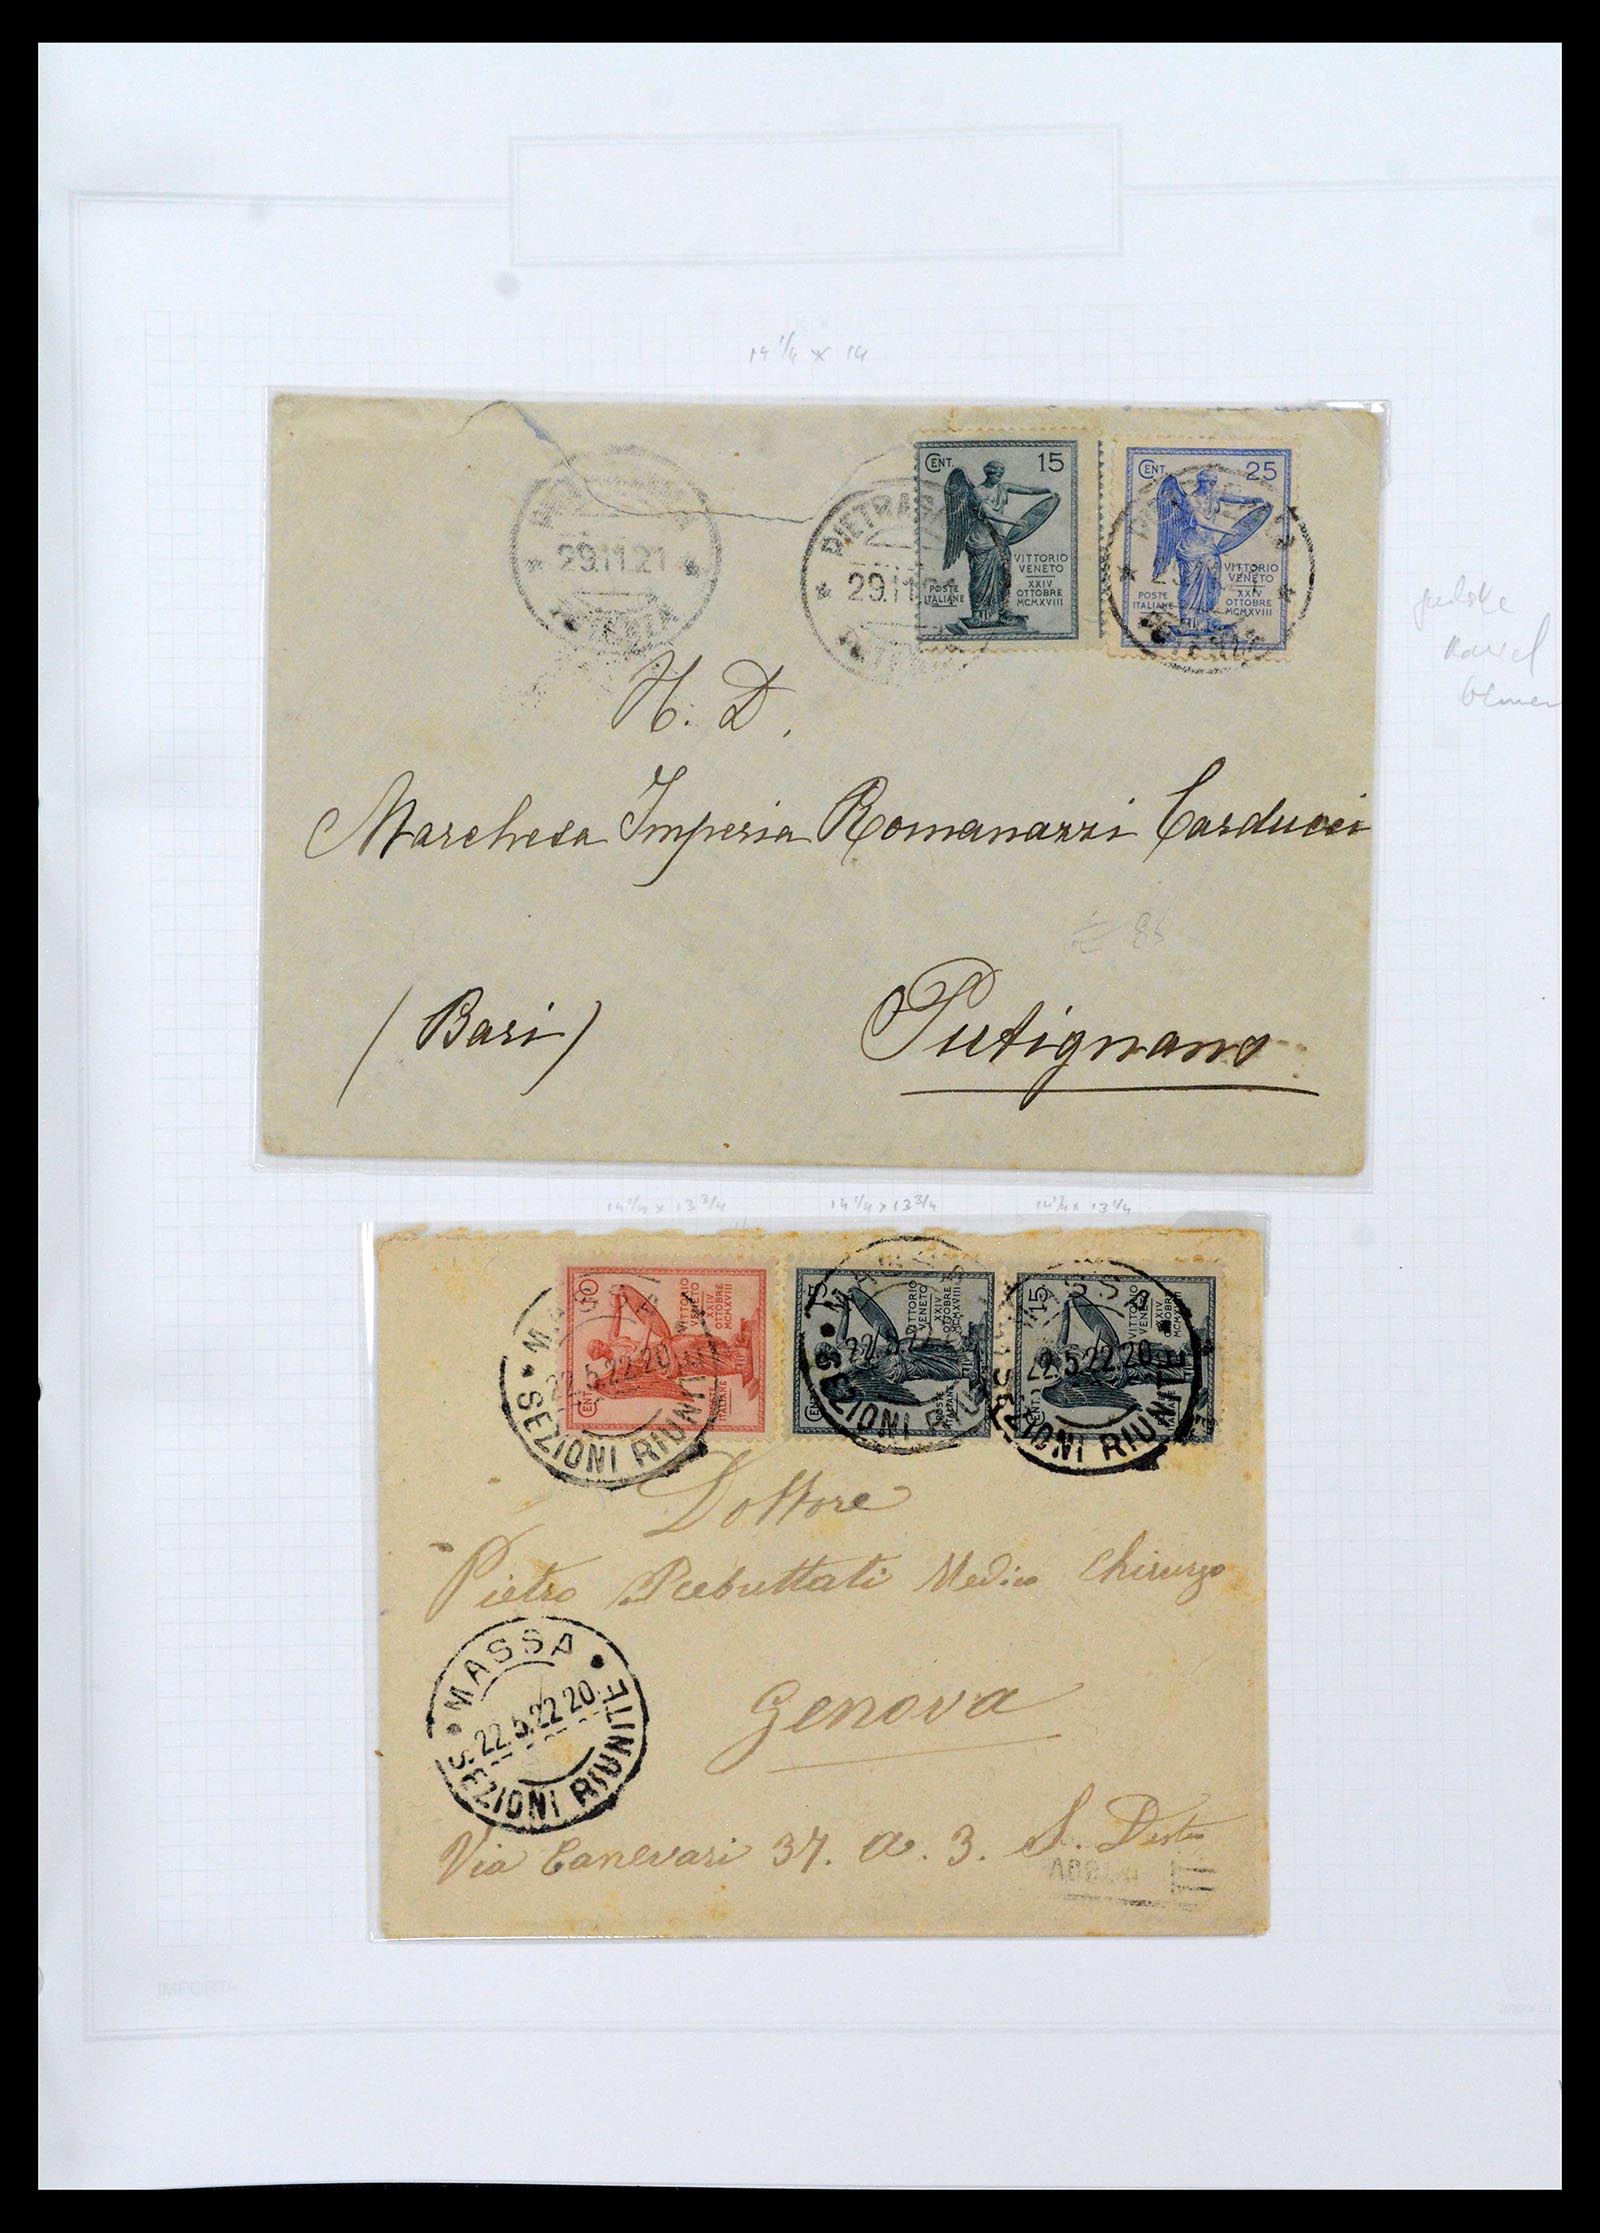 14 1/4 x 14
CENT. 15
VITTORIO
VENETO
XXIV
OTTOBRE
MCMXVIII
POSTE
ITALIANE
CENT. 25
VITTORIO
VENETO
XXIV
OTTOBRE
MCMXVIII
POSTE
ITALIANE
29.11.21
29.11.21
N. D.
Marchesa Imperia Romanazzi Carducci
(Bari)
Putignano
14 1/4 x 13 3/4
14 1/4 x 13 3/4
14 1/4 x 13 1/4
CENT. 10
VITTORIO
VENETO
XXIV
OTTOBRE
MCMXVIII
POSTE
ITALIANE
CENT. 15
VITTORIO
VENETO
XXIV
OTTOBRE
MCMXVIII
POSTE
ITALIANE
CENT. 15
VITTORIO
VENETO
XXIV
OTTOBRE
MCMXVIII
MASSA
22.5.22.20
SEZIONI RIUNITE
22.5.22.20
SEZIONI RIUNITE
Dottore
Pietro Medico Chirurgo
MASSA
22.5.22 20
SEZIONI RIUNITE
Genova
Via Canevari 37. a. 3. S.
IMPORTA